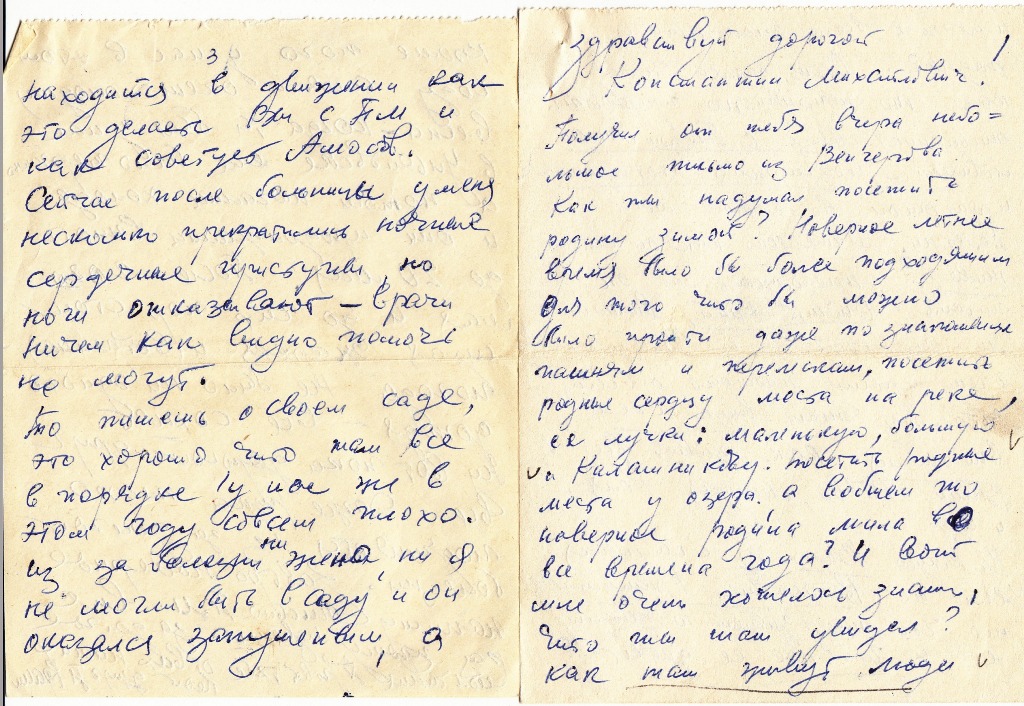 3
находится в движении как
это делаете Вы с ПМ и
как советует Амосов.
Сейчас после больницы у меня
несколько прекратились ночные
сердечные приступы, но
ноги отказывают – врачи
ничем как видно помочь
не могут.
Ты пишешь о своем саде,
это хорошо что там все
в порядке у нас же в
этом году совсем плохо.
из за болезни ни жена, ни я
не могли быть в саду и он
оказался запущенным, а
1
Здравствуй дорогой
Константин Михайлович!
Получил от тебя вчера небо=
льшое письмо из Венчерова.
Как ты надумал посетить
родину зимой? Наверное летнее
время было бы более подходящим
для того что бы можно
было пройти даже по знакомым
пашням и перелескам, посетить
родные сердцу места на реке,
ее лучки: маленькую, большую
и Калашникову. посетить родные
места у озера. а вобщем то
наверное родина мила во
все времена года? И вот
мне очень хотелось знать,
что ты там увидел?
как там живут люди